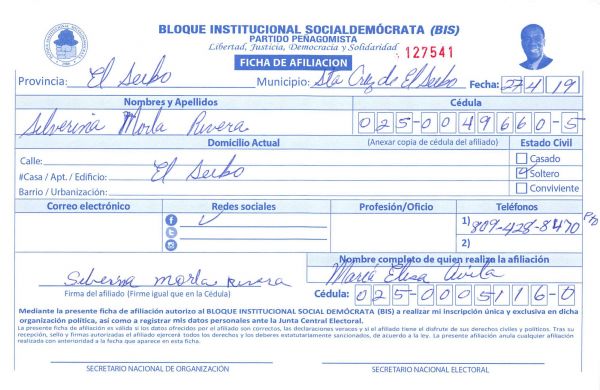 BLOQUE INSTITUCIONAL SOCIALDEMÓCRATA (BIS)
PARTIDO PEÑAGOMISTA
Libertad, Justicia, Democracia y Solidaridad
127541
FICHA DE AFILIACION
Provincia: El Seibo Municipio: Sta Cruz de El Seibo Fecha: 27/4/19
Nombres y Apellidos Cédula
Silverina Morla Rivera 025-0049660-5
Domicilio Actual (Anexar copia de cédula del afiliado) Estado Civil
Calle: Casado
#Casa / Apt. / Edificio: El Seibo Soltero
Barrio / Urbanización: Conviviente
Correo electrónico Redes sociales Profesión/Oficio Teléfonos
1) 809-428-8470
2)
Nombre completo de quien realiza la afiliación
Silverina Morla Rivera María Elisa Avila
Firma del afiliado (Firme igual que en la Cédula) Cédula: 025-0005116-0
Mediante la presente ficha de afiliación autorizo al BLOQUE INSTITUCIONAL SOCIAL DEMÓCRATA (BIS) a realizar mi inscripción única y exclusiva en dicha
organización política, así como a registrar mis datos personales ante la Junta Central Electoral.
La presente ficha de afiliación es válida si los datos ofrecidos por el afiliado son correctos, las declaraciones veraces y si el afiliado tiene el disfrute de sus derechos civiles y políticos. Tras su
recepción, sello y firmas autorizadas el afiliado ejercerá todos los derechos y los deberes estatutariamente sancionados, de acuerdo a la ley. La presente afiliación anula cualquier afiliación
realizada con anterioridad a la fecha que aparece en esta ficha.
SECRETARIO NACIONAL DE ORGANIZACIÓN SECRETARIO NACIONAL ELECTORAL